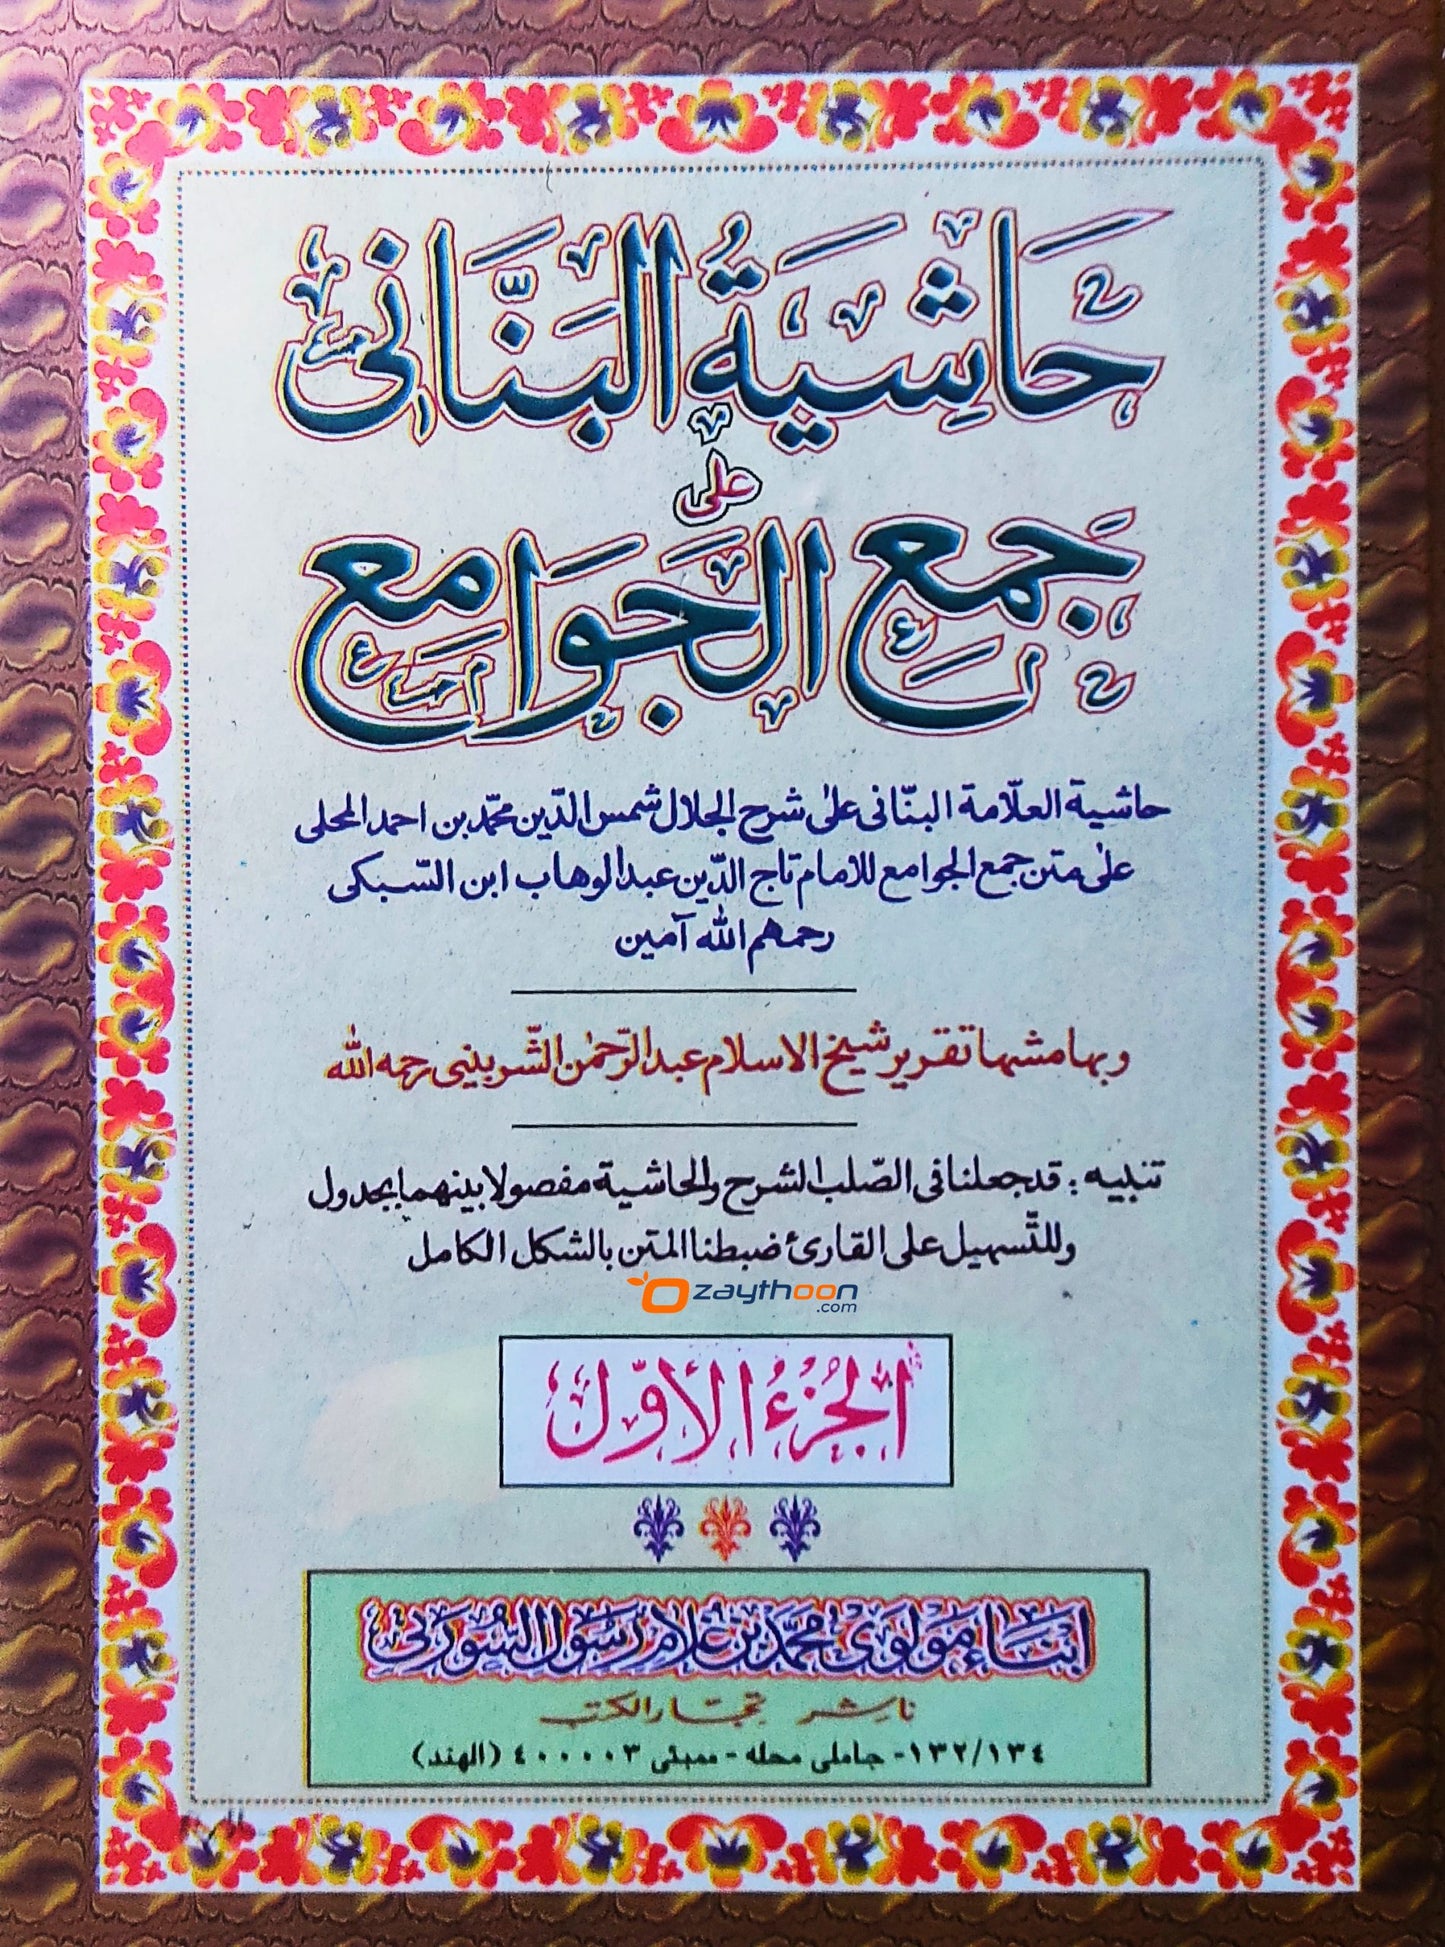 حَاشِيَةُ البَنَّانى
عَلى
جَمعِ الجَوَامِع
حاشية العلّامة البنّانى على شرح الجلال شمس الدّين محمّد بن احمد المحلى
على متن جمع الجوامع للامام تاج الدّين عبد الوهاب ابن السّبكى
رحمهم الله آمين
وبهامشها تقرير شيخ الاسلام عبد الرّحمٰن الشّربينى رحمه الله
تنبيه : قد جعلنا فى الصّلب الشرح والحاشية مفصولا بينهما بجدول
وللتّسهيل على القارئ ضبطنا المتن بالشكل الكامل
Ozaythoon
.com
الجُزءُ الأوّل
ابناء مولوى محمّد بن غلام رسول السورتى
ناشر تجار الكتب
١٣٢/١٣٤- جاملى محله - ممبئى ٤٠٠٠٠٣ (الهند)